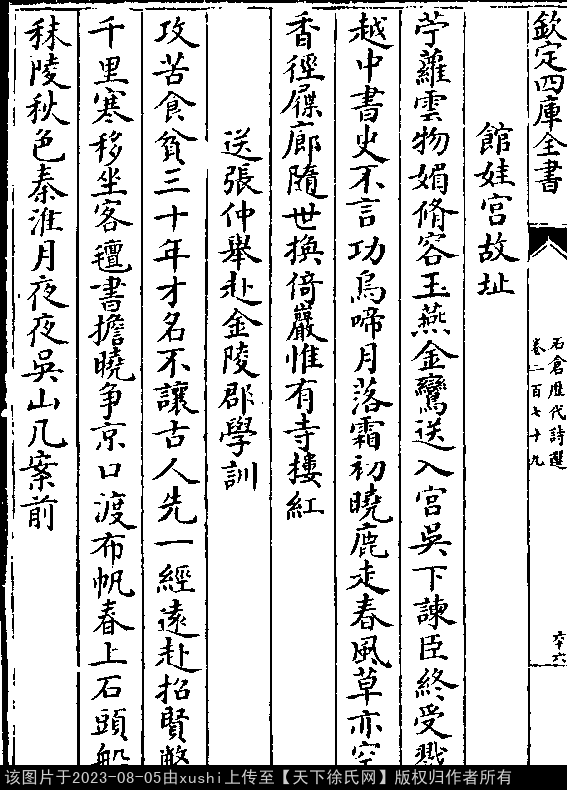 欽定四庫全書
石倉歷代詩選
卷二百七十九
六十六
館娃宮故址
苧蘿雲物媚脩容玉燕金鸞送入宮吳下諫臣終受戮
越中書史不言功烏啼月落霜初曉鹿走春風草亦空
香徑屧廊隨世換倚巖惟有寺樓紅
送張仲舉赴金陵郡學訓
攻苦食貧三十年才名不讓古人先一經遠赴招賢幣
千里寒移坐客氊書擔曉爭京口渡布帆春上石頭船
秣陵秋色秦淮月夜夜吳山几案前
该图片于2023-08-05由xushi上传至【天下徐氏网】版权归作者所有